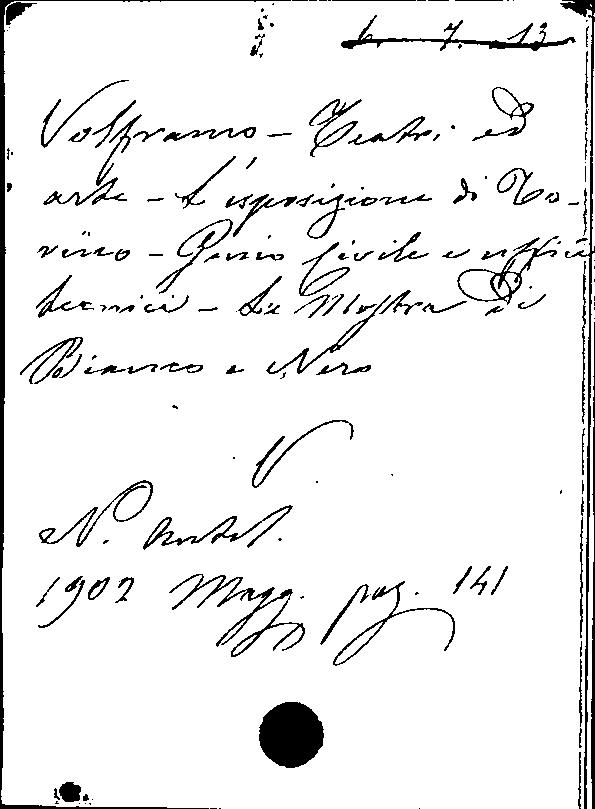 6. 7. 13
Volframo - Teatri ed
arte - L'esposizione di To-
rino - Genio Civile e uffici
tecnici - La Mostra di
Bianco e Nero
V
N. Antol.
1902 Magg. pag. 141